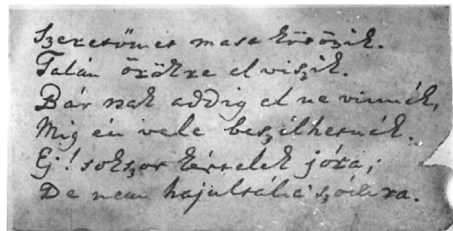 Szeretőmet masa kisözik.
Talán örökre elviszik.
Bár csak addig el ne vinnék,
Mig én vele beszélhetnék.
Ej! sokszor kértelek jóra;
De nem hajultál a szóra.